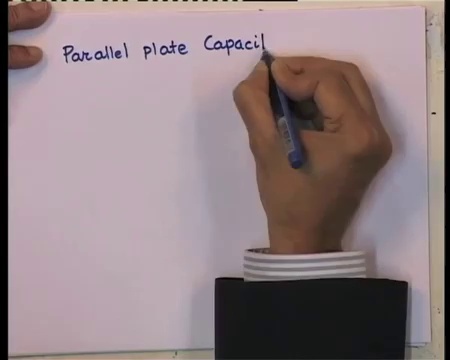 Parallel plate Capaci